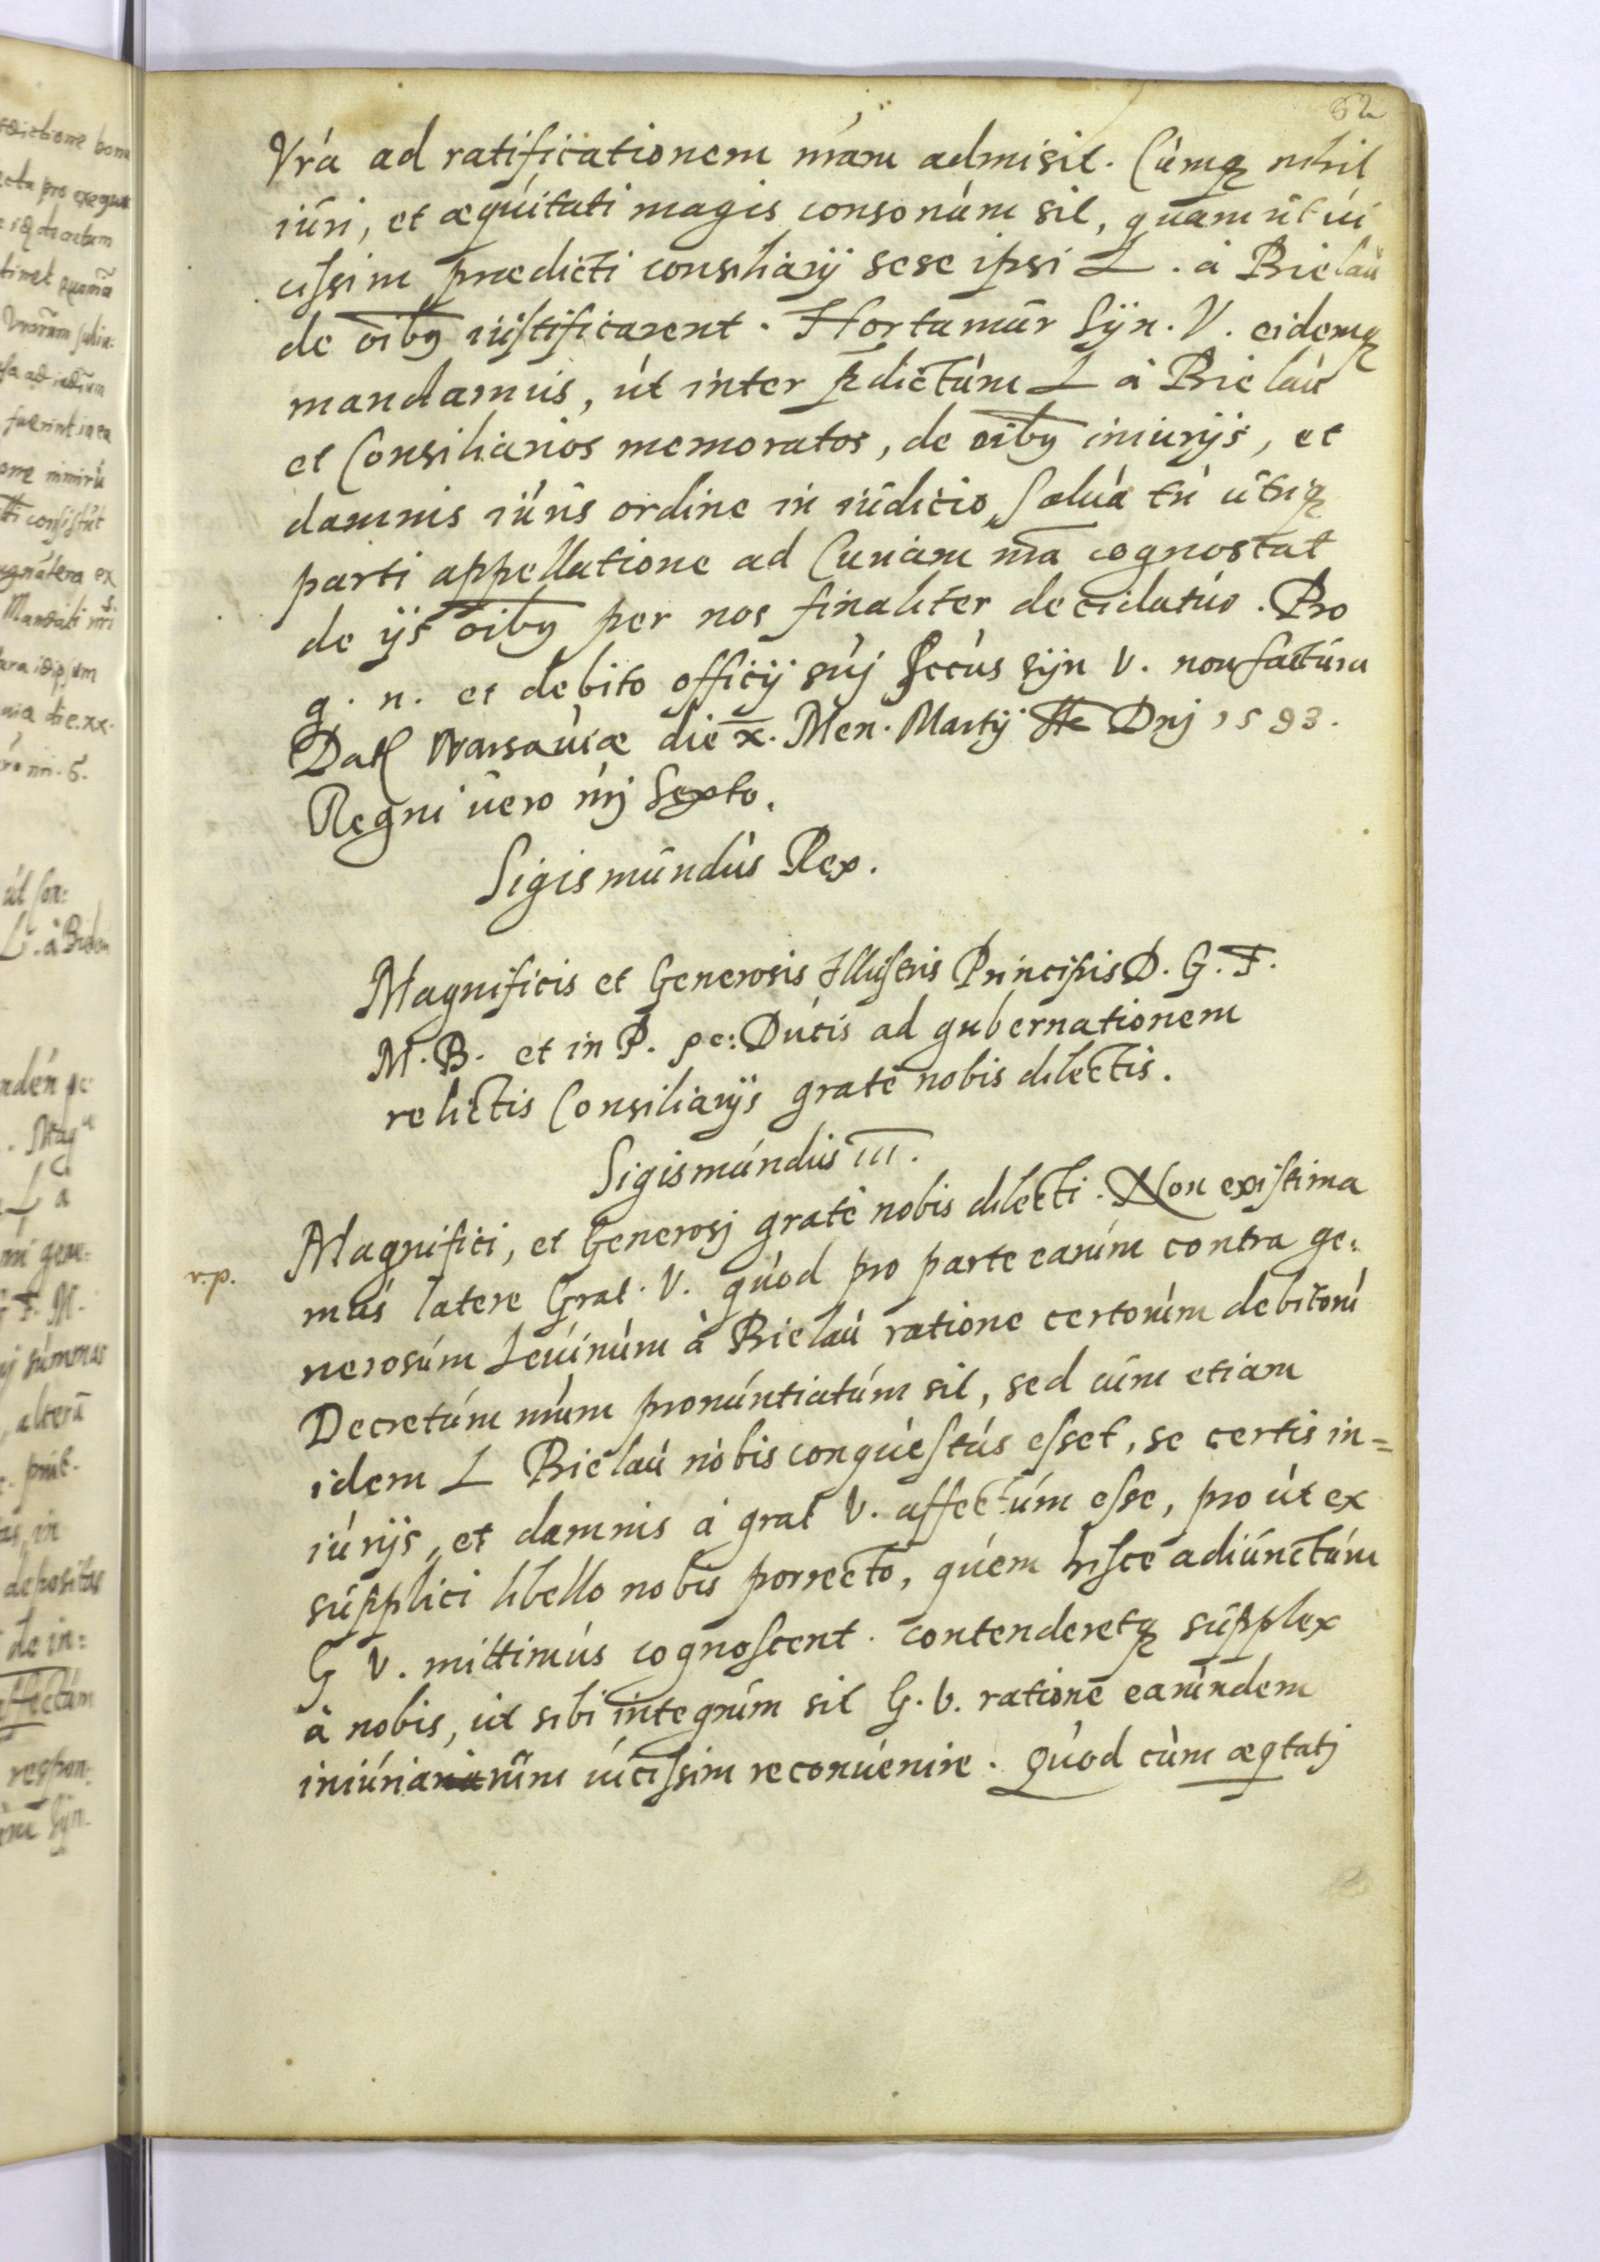 62
Vrá ad ratificationem nrám admisit. Cúmq nihil
iúri, et æqúitati magis consonúm sit, quam út úi
cissim prædicti consiliarij sese ipsi L. à Bielaú
de oibq iústificarent. Hortamúr Sÿn. V. eidemq
mandamus, út inter pdictúm L à Bielaú
et Consiliarios memoratos, de oibq iniurijs, et
damnis iúris ordine in iúdicio, Salúa tn útriq
parti appellatione ad Curiam nrã cognoscat
de ijs oibq per nos finaliter decidatúr. Pro
g. n. et debito officij súj secús sÿn V. non factúra
Dat Warsaúiæ die x. Men. Martij Ao Dnj 1593.
Regni úero nrj Sexto.
Sigismúndús Rex.
Magnificis et Generosis Illustris Principis D. G. F.
M. B. et in P. pc: Dúcis ad gubernationem
relictis Consiliarijs graté nobis dilectis.
Sigismúndús III.
Magnifici, et Generosj graté nobis dilecti. Non existima
r.p.
mús latere Grat. V. qúod pro parte earúm contra ge:
nerosúm Leúinúm à Bielaú ratione certorúm debitorú
Decretúm nrúm pronúntiatúm sit, sed cúm etiam
idem L Bielaú nobis conqúestús esset, se certis in=
iúrijs, et damnis à grat V. affectúm esse, pro út ex
súpplici libello nobis porrecto, qúem hisce adiúnctúm
G V. mittimús cognoscent. contenderetq súpplex
à nobis, út sibi integrúm sit G. V. ratione earúndem
iniúriarúm úicissim reconúenire. Qúod cúm æqtatj